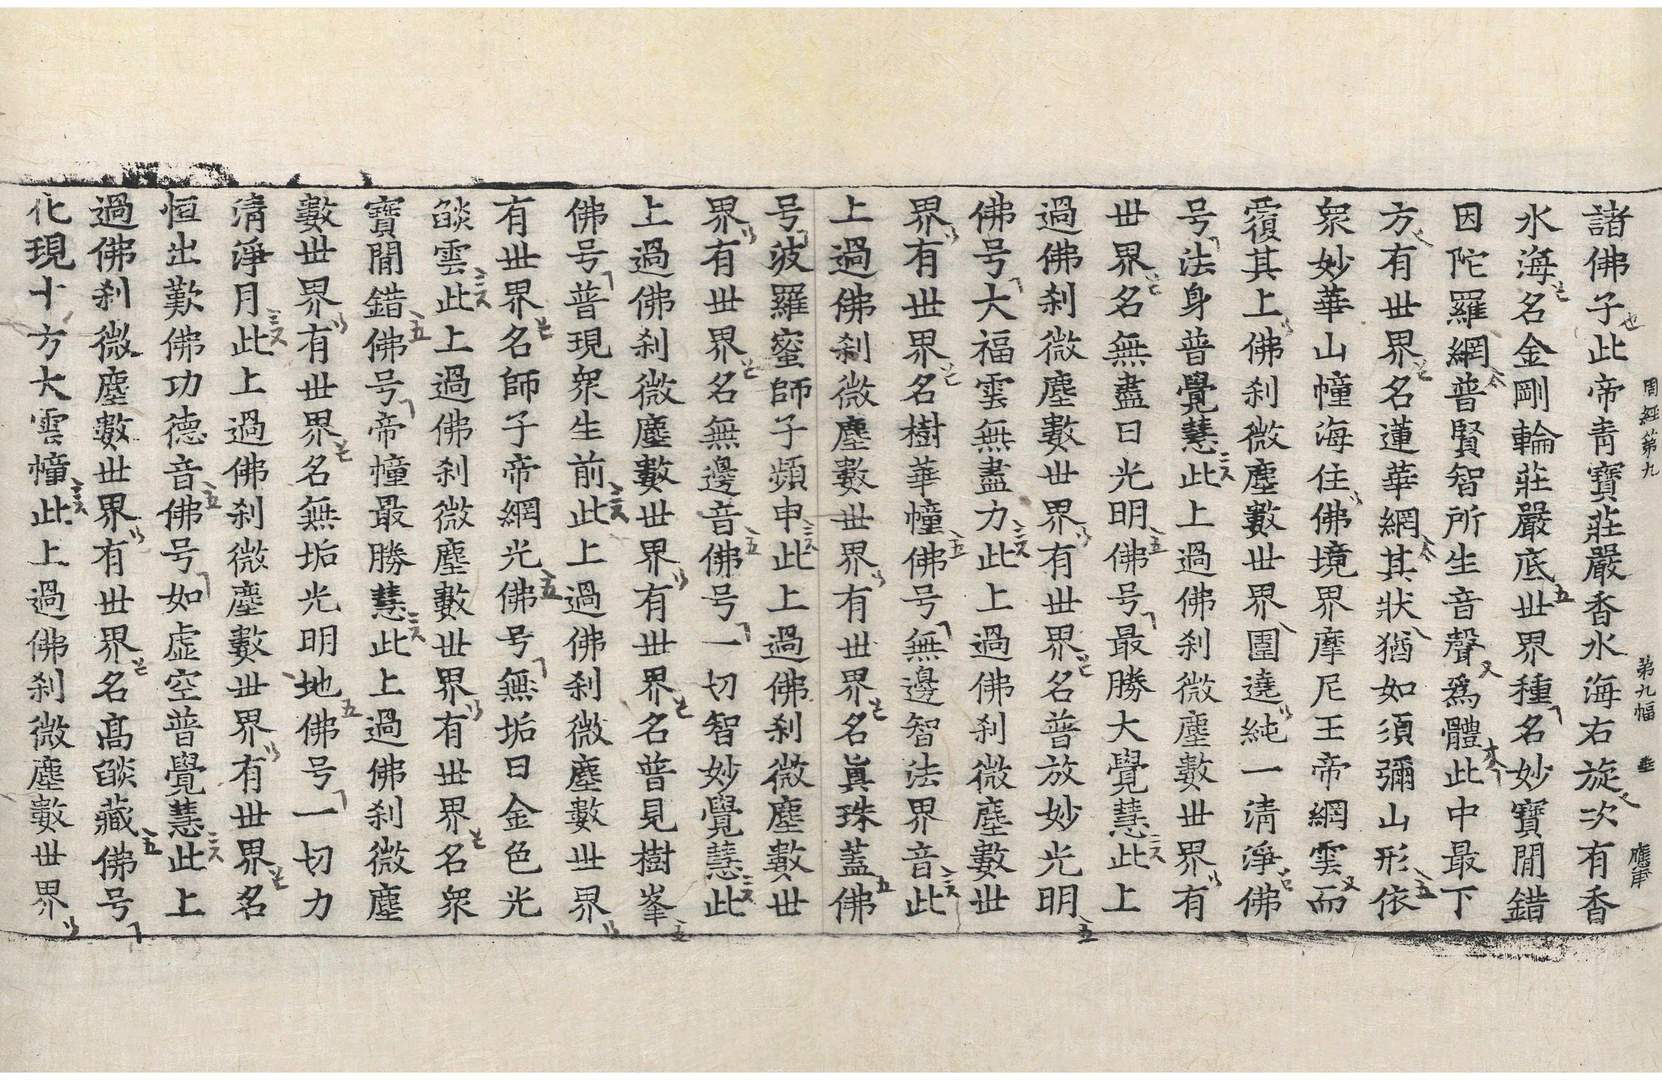 周經第九 第九幅 㘴 應甫
諸佛子此帝青寶莊嚴香水海右旋次有香
水海名金剛輪莊嚴底世界種名妙寶閒錯
因陀羅網普賢智所生音聲爲體此中最下
方有世界名蓮華網其狀猶如須彌山形依
衆妙華山幢海住佛境界摩尼王帝網雲而
覆其上佛刹微塵數世界圍遶純一清淨佛
号法身普覺慧此上過佛刹微塵數世界有
世界名無盡日光明佛号最勝大覺慧此上
過佛刹微塵數世界有世界名普放妙光明
佛号大福雲無盡力此上過佛刹微塵數世
界有世界名樹華幢佛号無邊智法界音此
上過佛刹微塵數世界有世界名眞珠蓋佛
号波羅蜜師子頻申此上過佛刹微塵數世
界有世界名無邊音佛号一切智妙覺慧此
上過佛刹微塵數世界有世界名普見樹峯
佛号普現衆生前此上過佛刹微塵數世界
有世界名師子帝網光佛号無垢日金色光
燄雲此上過佛刹微塵數世界有世界名衆
寶閒錯佛号帝幢最勝慧此上過佛刹微塵
數世界有世界名無垢光明地佛号一切力
清淨月此上過佛刹微塵數世界有世界名
恒出歎佛功德音佛号如虛空普覺慧此上
過佛刹微塵數世界有世界名高燄藏佛号
化現十方大雲幢此上過佛刹微塵數世界